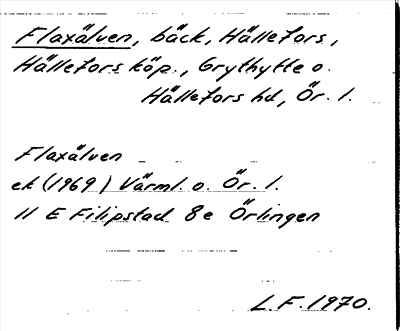 Flaxälven, bäck, Hällefors,
Hällefors köp., Grythytte o.
Hällefors hd, Ör. l.
Flaxälven
ek (1969) Värml. o. Ör. l.
11 E Filipstad 8e Örlingen
L.F. 1970.